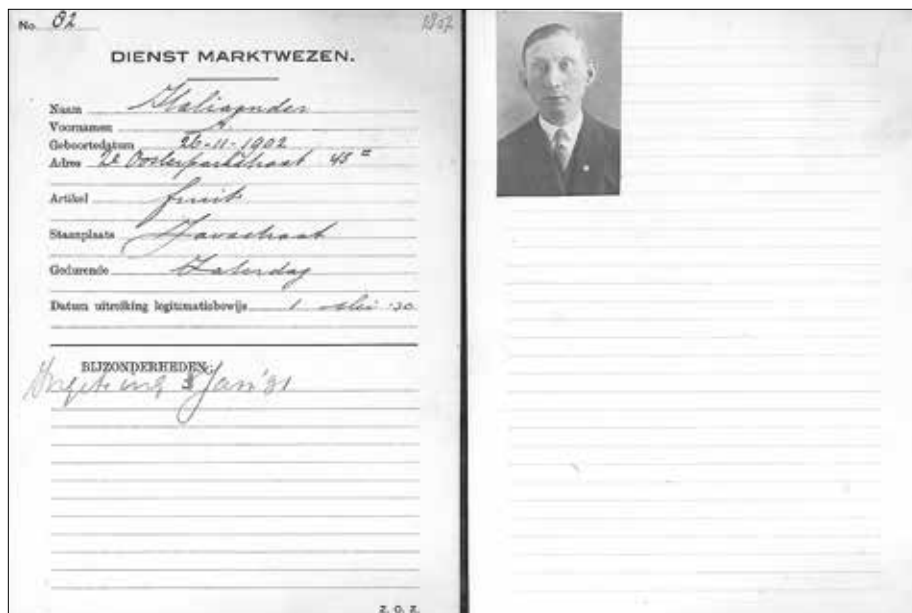 No. 82
DIENST MARKTWEZEN.
Naam Italiaander
Voornamen A.
Geboortedatum 26-11-1902
Adres 2e Oosterparkstraat 48 II
Artikel fruit
Staanplaats Javastraat
Gedurende Zaterdag
Datum uitreiking legitimatiebewijs 1 Mei '30
BIJZONDERHEDEN:
Jan '31
Z. O. Z.